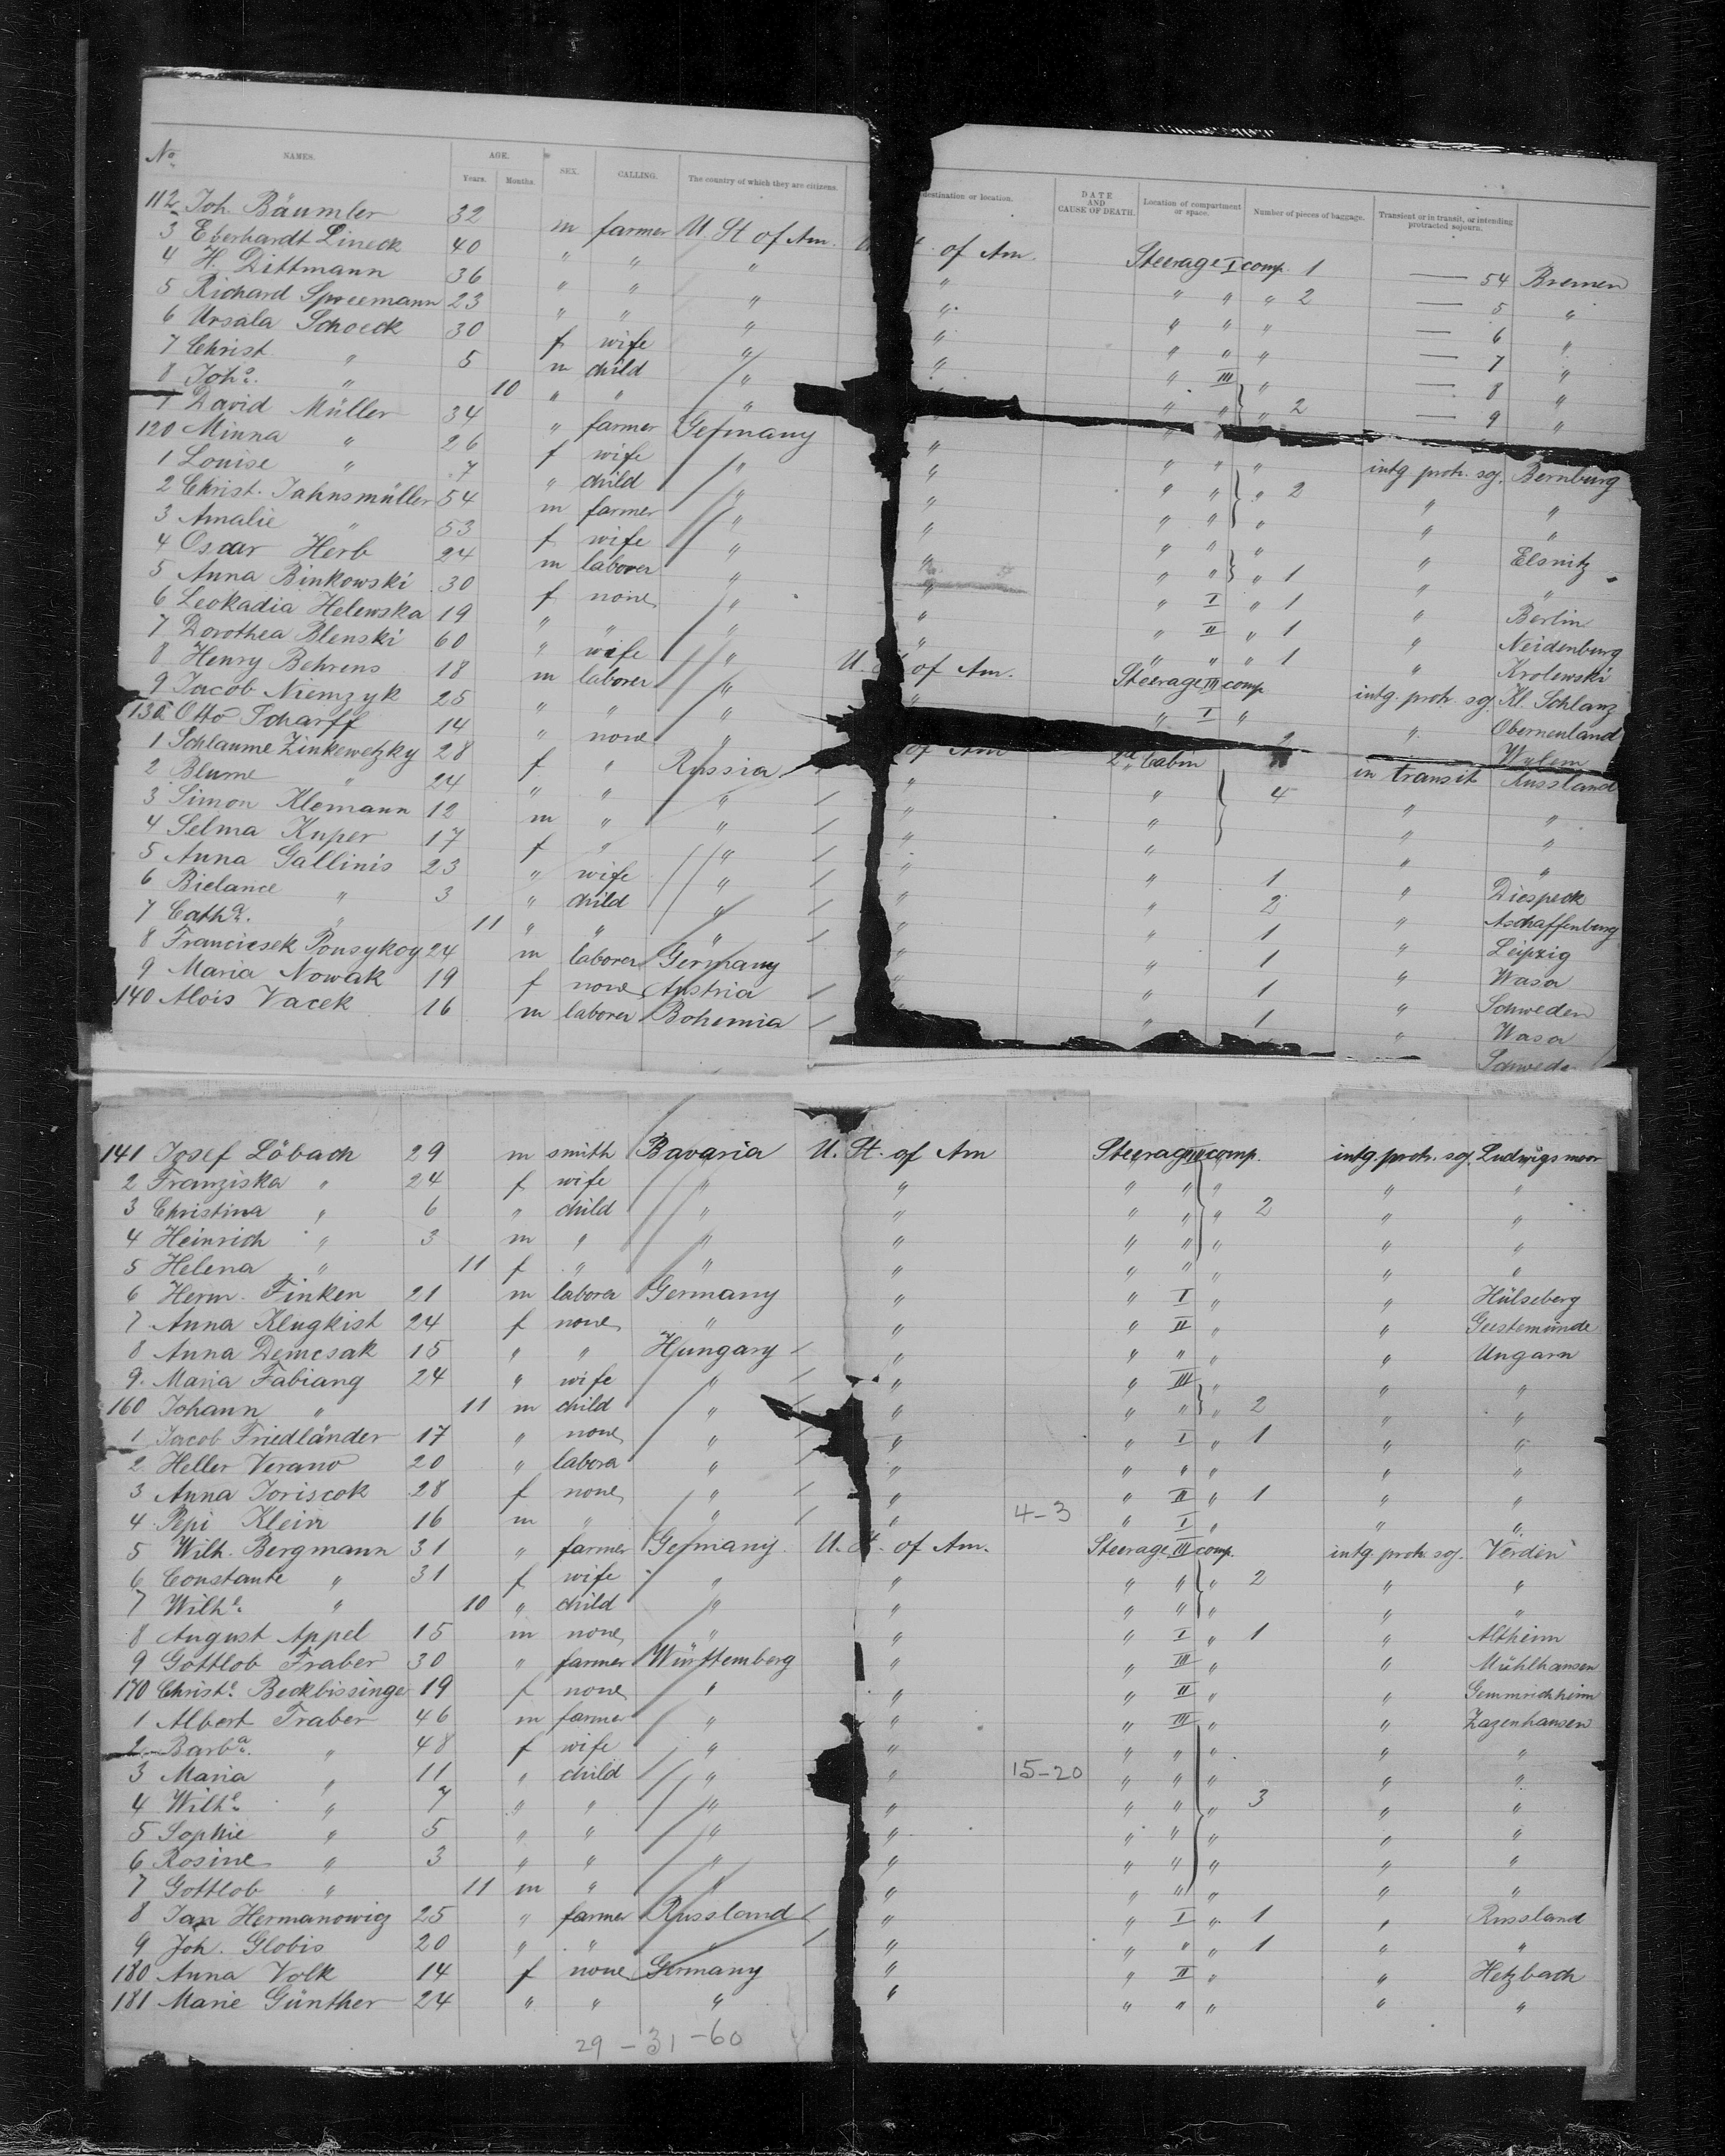 No NAMES. AGE. Years. Months. SEX. CALLING. The country of which they are citizens. destination or location. DATE AND CAUSE OF DEATH. Location of compartment or space. Number of pieces of baggage. Transient or in transit, or intending protracted sojourn.
112 Joh. Bäumler 32 m farmer U. St of Am. of Am. Steerage I comp. 1 — 54 Bremen
3 Eberhardt Lineck 40 " " " " " " " 2 — 5 "
4 H. Dittmann 36 " " " " " " " — 6 "
5 Richard Spreemann 23 " " " " " " " — 7 "
6 Ursala Schoeck 30 f wife " " " III " — 8 "
7 Christ " 5 m child " " " " 2 — 9 "
8 Joh.e " 10 " " "
9 David Müller 34 " farmer Germany " " " " intg proh. soj. Bernburg
120 Minna " 26 f wife " " " " 2 " "
1 Louise " 7 " child " " " " " " "
2 Christ. Jahnsmüller 54 m farmer " " " " " " Elsnitz
3 Amalie " 53 f wife " " " " 1 " "
4 Oscar Herb 24 m laborer " " " I " 1 " Berlin
5 Anna Binkowski 30 f none " " " II " 1 " Neidenburg
6 Leokadia Helewska 19 " " " " " " " 1 " Krolewski
7 Dorothea Blenski 60 " wife " U. of Am. Steerage III comp intg. proh. soj. Kl. Schlanz
8 Henry Behrens 18 m laborer " " " I " " Obernenland
9 Jacob Niemzyk 25 " " " 2 Wylem
130 Otto Scharff 14 " none "
1 Schlaume Zinkewetzky 28 f " Russia of Am 2d Cabin in transit Russland
2 Blume " 24 " " " " " 4 " "
3 Simon Klemann 12 m " " " " " "
4 Selma Kuper 17 f " " " " " "
5 Anna Gallinis 23 " wife " " " 1 " Diespeck
6 Bielance " 3 " child " " " 2 " Aschaffenburg
7 Cath.a " 11 " " " " " 1 " Leipzig
8 Franciesek Ponsykoy 24 m laborer Germany " " 1 " Wasa
9 Maria Nowak 19 f none Austria " " 1 " Schweden
140 Alois Vacek 16 m laborer Bohemia " 1 " Wasa
Schwede
141 Josef Löbach 29 m smith Bavaria U. St. of Am Steerage III comp. intg. proh. soj. Ludwigsmoor
2 Franziska " 24 f wife " " " " " " "
3 Christina " 6 " child " " " " " 2 " "
4 Heinrich " 3 m " " " " " " " "
5 Helena " 11 f " " " " " " " "
6 Herm. Finken 21 m laborer Germany " " I " " Hülseberg
7 Anna Klugkist 24 f none " " " II " " Geestemünde
8 Anna Demcsak 15 " " Hungary " " " " " Ungarn
9. Maria Fabiang 24 " wife " " " III " " "
160 Johann " 11 m child " " " " " 2 " "
1 Jacob Friedländer 17 " none " " " I " 1 " "
2 Heller Verano 20 " labora " " " " " " "
3 Anna Joriscok 28 f none " " " II " 1 " "
4 Pepi Klein 16 m " " " 4-3 " I " " "
5 Wilh. Bergmann 31 " farmer Germany U. St. of Am. Steerage III comp. intg. proh. soj. Verden
6 Constante " 31 f wife " " " " " 2 " "
7 Wilh.e " 10 " child " " " " " " "
8 August Appel 15 m none " " " I " 1 " Altheim
9 Gottlob Traber 30 " farmer Württemberg " " III " " Mühlhausen
170 Christ.e Beckbissinger 19 f none " " " II " " Gemmrichheim
1 Albert Traber 46 m farmer " " " III " " Zazenhausen
2 Barb.a " 48 f wife " " " " " " "
3 Maria " 11 " child " " 15-20 " " " " "
4 Wilh.e " 7 " " " " " " " 3 " "
5 Sophie " 5 " " " " " " " " "
6 Rosine " 3 " " " " " " " " "
7 Gottlob " 11 m " " " " " " " "
8 Jan Hermanowicz 25 " farmer Russland " " I " 1 " Russland
9 Joh. Globis 20 " " " " " " " 1 " "
180 Anna Volk 14 f none Germany " " II " " Hetzbach
181 Marie Günther 24 " " " " " " " " "
29 - 31 - 60